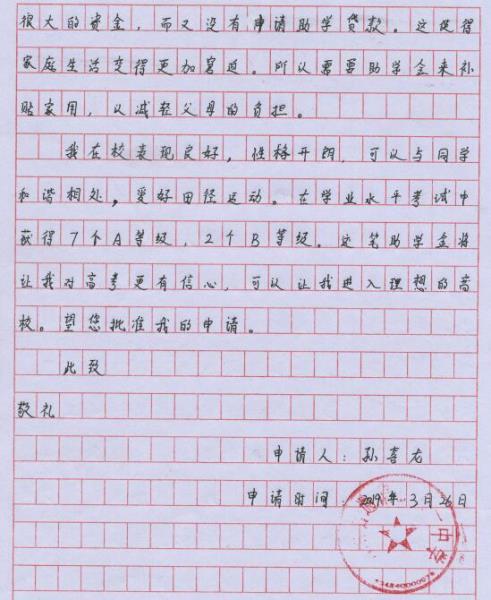 很大的资金，而又没有申请助学贷款。这使得
家庭生活变得更加窘迫。所以需要助学金来补
贴家用，以减轻父母的负担。
我在校表现良好，性格开朗，可以与同学
和谐相处，爱好田径运动。在学业水平考试中
获得7个A等级，2个B等级。这笔助学金将
让我对高考更有信心，可以让我进入理想的高
校。望您批准我的申请。
此致
敬礼
申请人：孙喜龙
申请时间：2019年3月26日